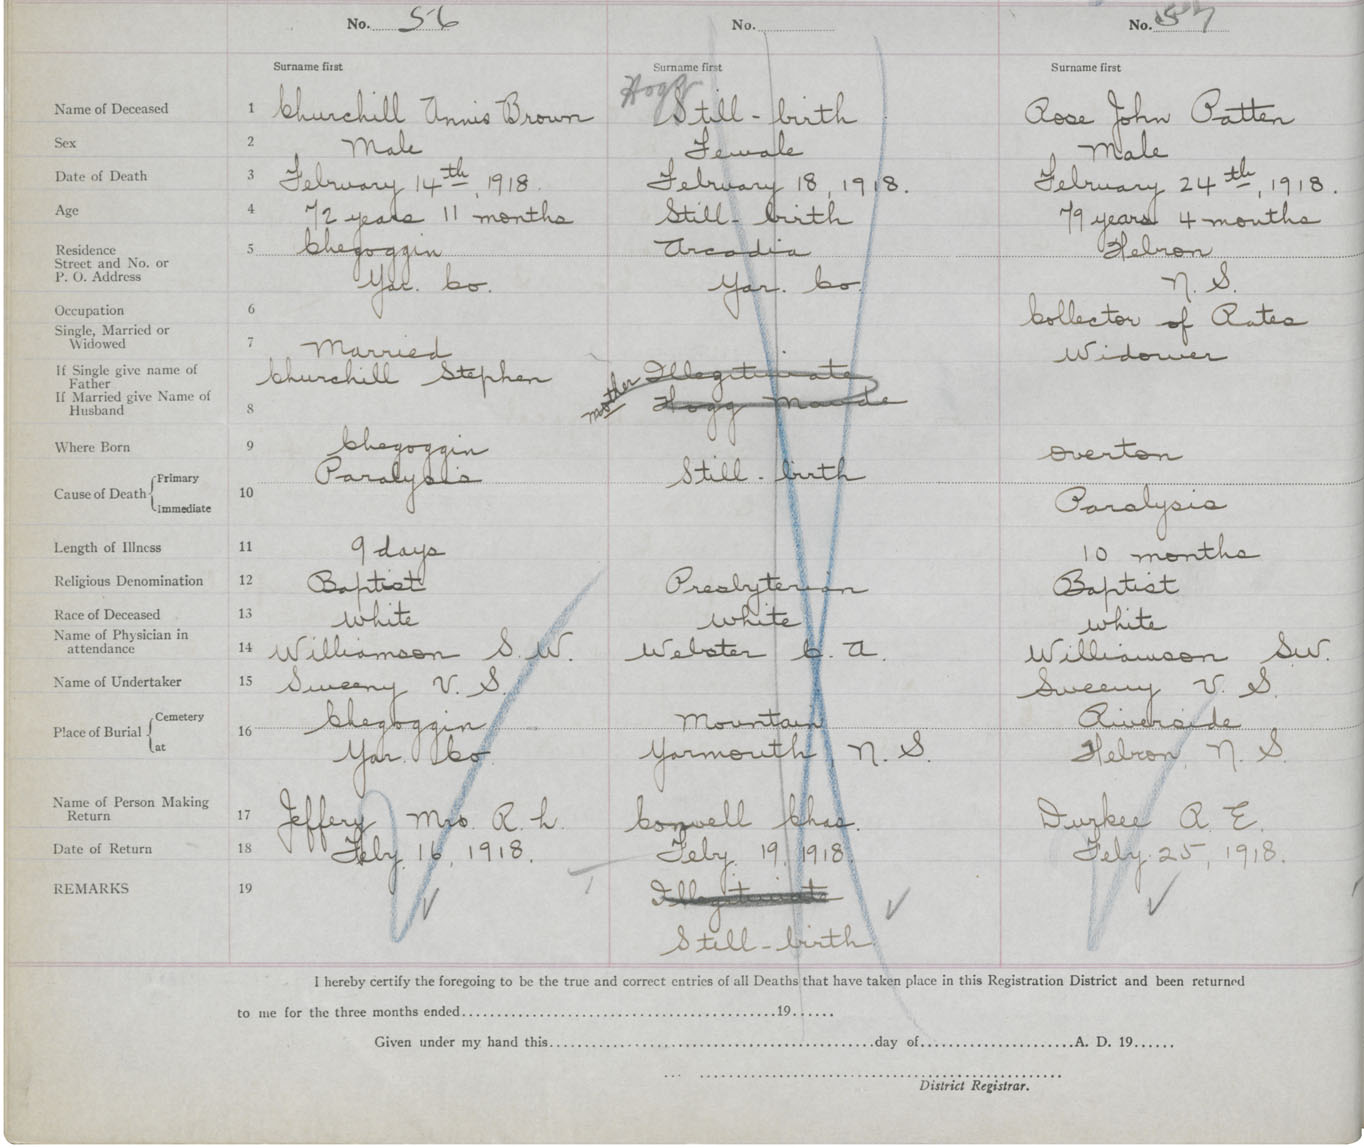 No. 56 No. No. 57
Surname first Surname first Surname first
Hogg
Name of Deceased 1 Churchill Annis Brown Still-birth Rose John Patten
Sex 2 Male Female Male
Date of Death 3 February 14th, 1918. February 18, 1918. February 24th, 1918.
Age 4 72 years 11 months Still-birth 79 years 4 months
Residence 5 Chegoggin Arcadia Hebron
Street and No. or
P. O. Address Yar. Co. Yar. Co. N. S.
Occupation 6 Collector of Rates
Single, Married or
Widowed 7 Married Widower
If Single give name of
Father Churchill Stephen Illegitimate
If Married give Name of
Husband 8 mother Hogg Maude
Where Born 9 Chegoggin Overton
Cause of Death { Primary Paralysis Still-birth
Immediate 10 Paralysis
Length of Illness 11 9 days 10 months
Religious Denomination 12 Baptist Presbyterian Baptist
Race of Deceased 13 white white white
Name of Physician in
attendance 14 Williamson S. W. Webster C. A. Williamson S.W.
Name of Undertaker 15 Sweeny V. S. Sweeny V. S.
Place of Burial { Cemetery Chegoggin Mountain Riverside
at 16 Yar. Co. Yarmouth, N. S. Hebron, N. S.
Name of Person Making
Return 17 Jeffery Mrs. R. L. Conwell Chas. Durkee R. E.
Date of Return 18 Feby. 16, 1918. Feby. 19, 1918. Feby. 25, 1918.
REMARKS 19 Illegitimate
Still-birth
I hereby certify the foregoing to be the true and correct entries of all Deaths that have taken place in this Registration District and been returned
to me for the three months ended..........19......
Given under my hand this..........day of..........A. D. 19......
District Registrar.